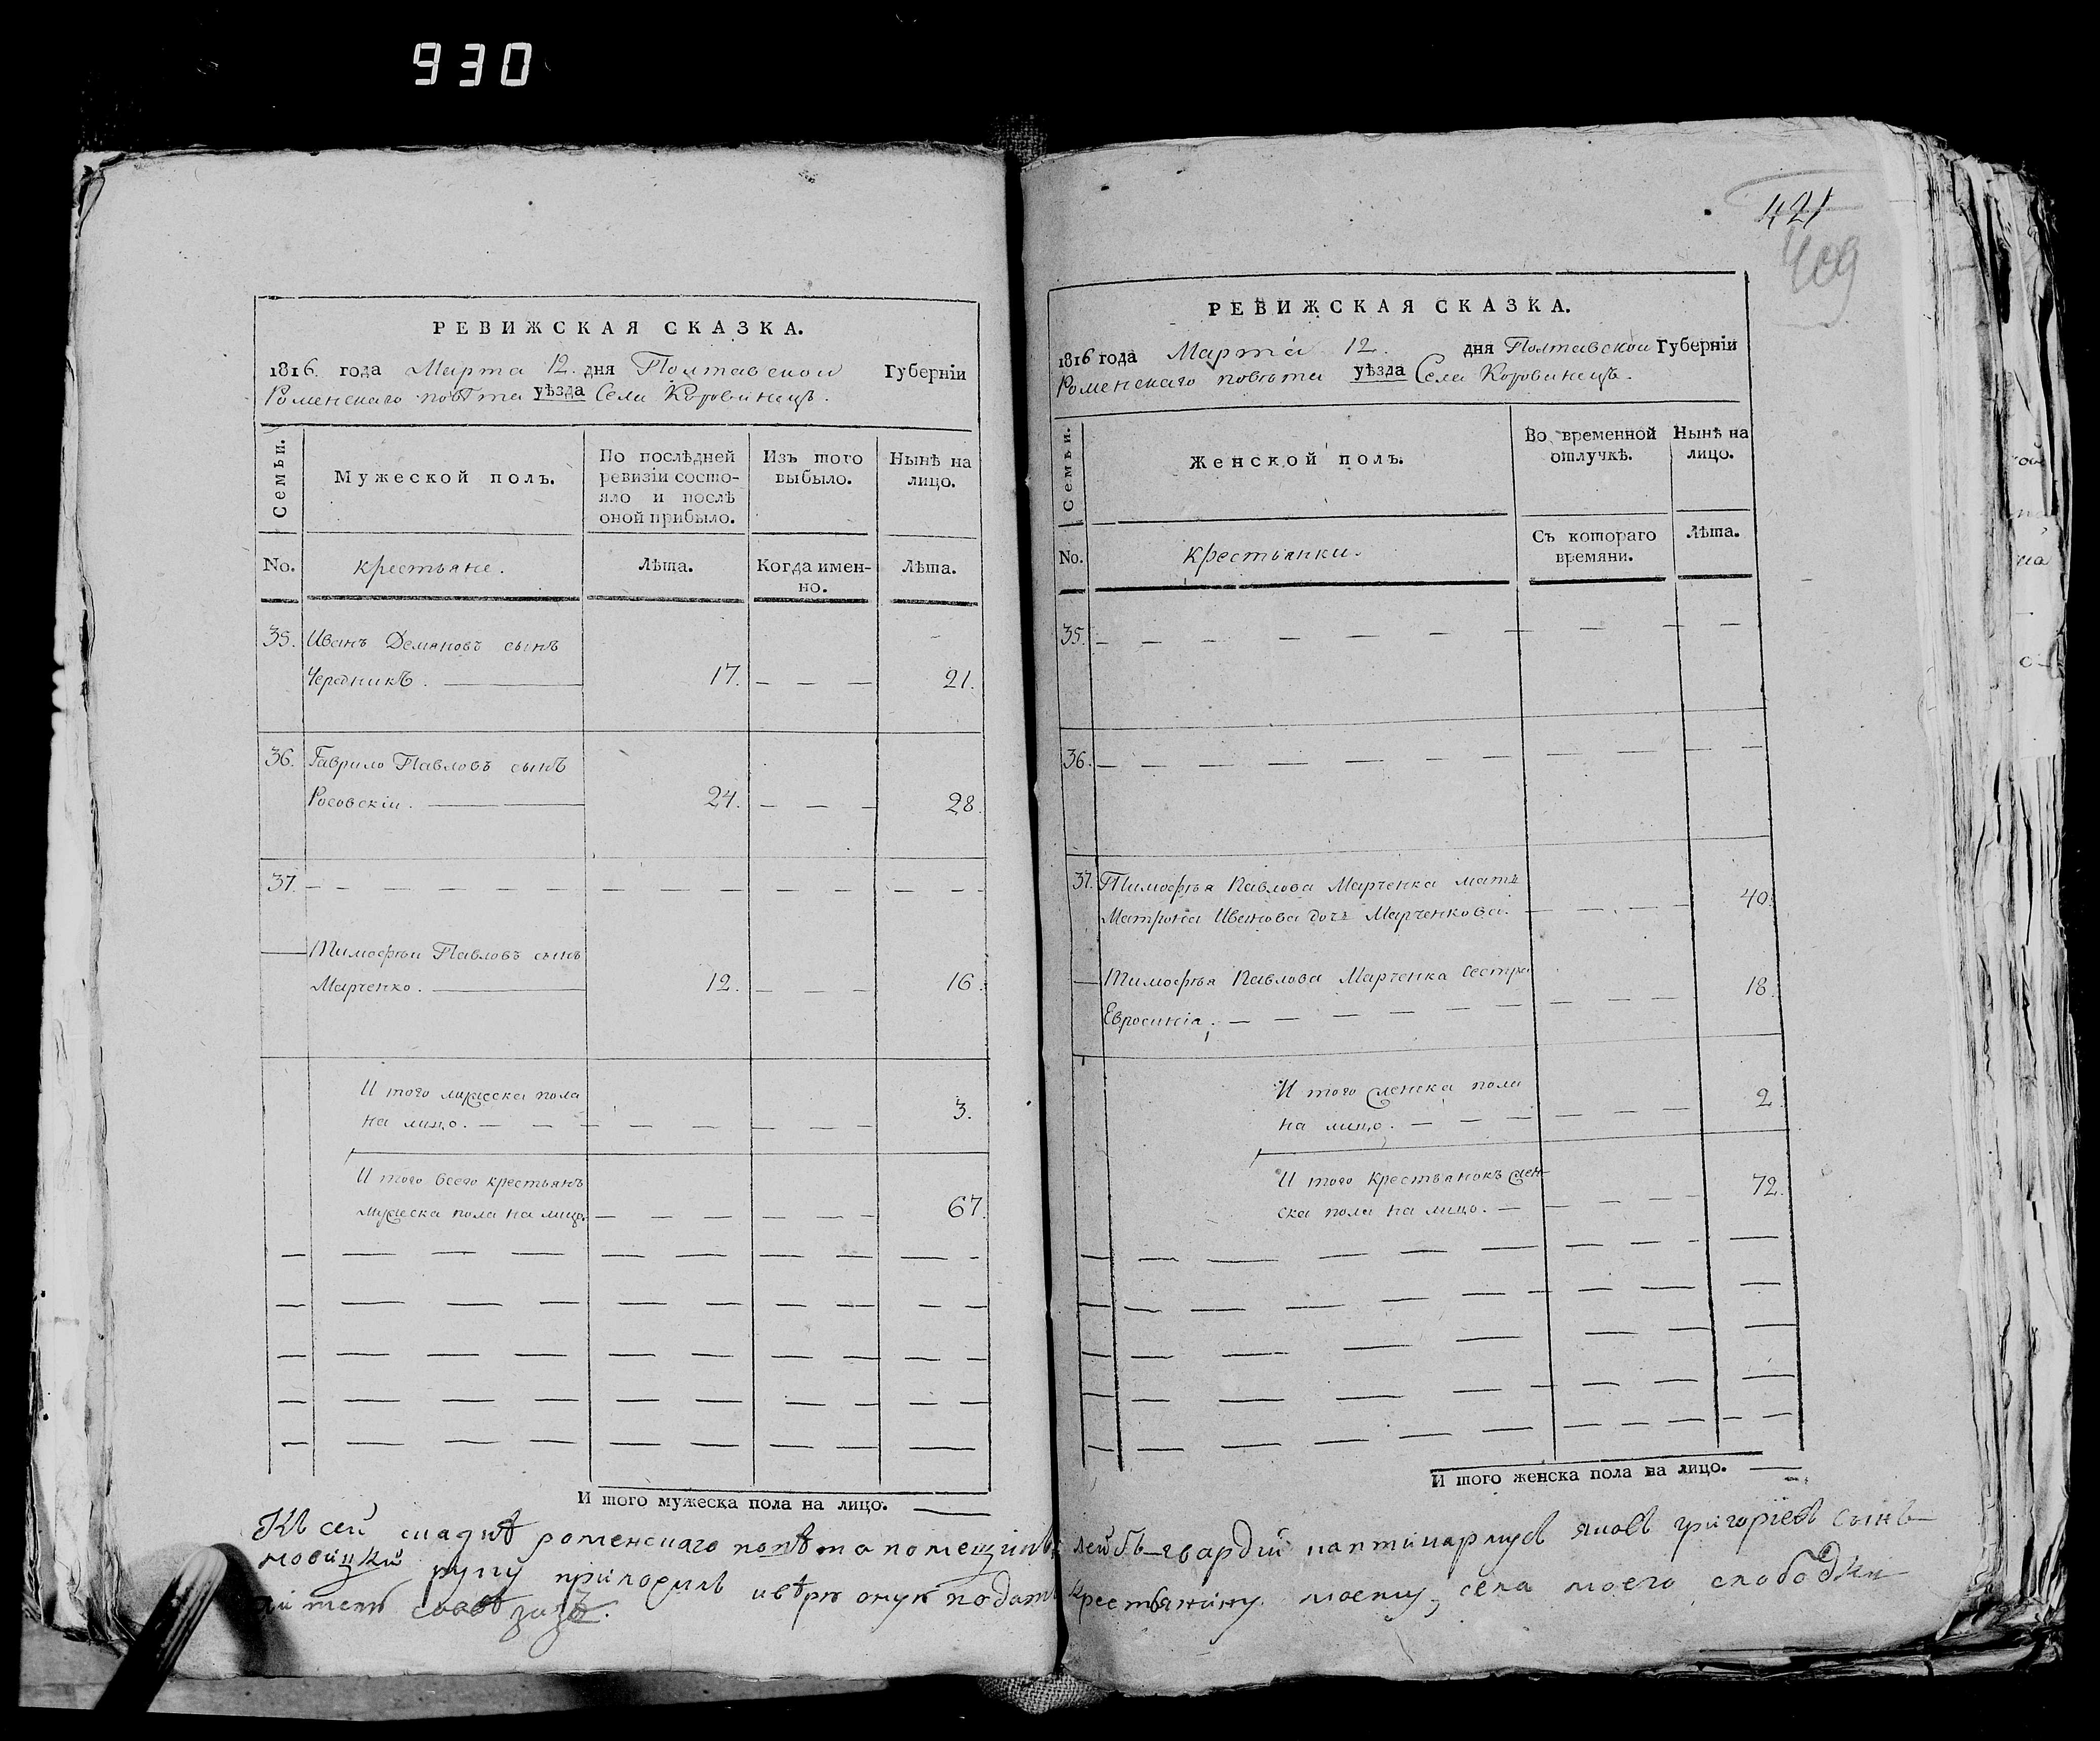 930
РЕВИЖСКАЯ СКАЗКА.
1816. года Марта 12. дня Полтавской Губерніи
Роменскаго повѣта уѣзда Села Коровинецъ.
Семьи.
Мужеской полъ.
По послѣдней
ревизіи состо-
яло и послѣ
оной прибыло.
Изъ того
выбыло.
Нынѣ на
лицо.
No. крестьяне. Лѣта. Когда имен-
но. Лѣта.
35. Иванъ Демяновъ сынъ
Чередникъ. 17. — — — 21.
36. Гаврило Павловъ сынъ
Росовскіи. 24. — — — 28.
37. — — — — — — — — — —
Тимофѣи Павловъ сынъ
Марченко. 12. — — — 16.
И того мужеска пола
на лицо. — — — — — — — 3.
И того всего крестьянъ
мужеска пола на лицо. — — — — — 67.
И того мужеска пола на лицо.
421
409
РЕВИЖСКАЯ СКАЗКА.
1816 года Марта 12. дня Полтавской Губерніи
Роменскаго повѣта уѣзда Села Коровинецъ.
Семьи.
Женской полъ.
Во временной
отлучкѣ.
Нынѣ на
лицо.
No. крестьянки.
Съ котораго
времяни.
Лѣта.
35. — — — — — — — — —
36. — — — — — — — — —
37. Тимофѣя Павлова Марченка мать
Матрона Иванова дочь Марченкова. — — — 40.
Тимофѣя Павлова Марченка сестра
Евросинія. — — — — — — 18.
И того женска пола
на лицо. — — — — — — 2.
И того крестьянокъ жен-
ска пола на лицо. — — — — 72.
И того женска пола на лицо.
Къ сей сказкѣ роменского повѣта помещикъ лейбъ-гвардіи каптинармусъ яковъ григорïевъ сынъ
новицкий руку приложилъ ивѣрю оную подать крестянину моему, села моего слободки